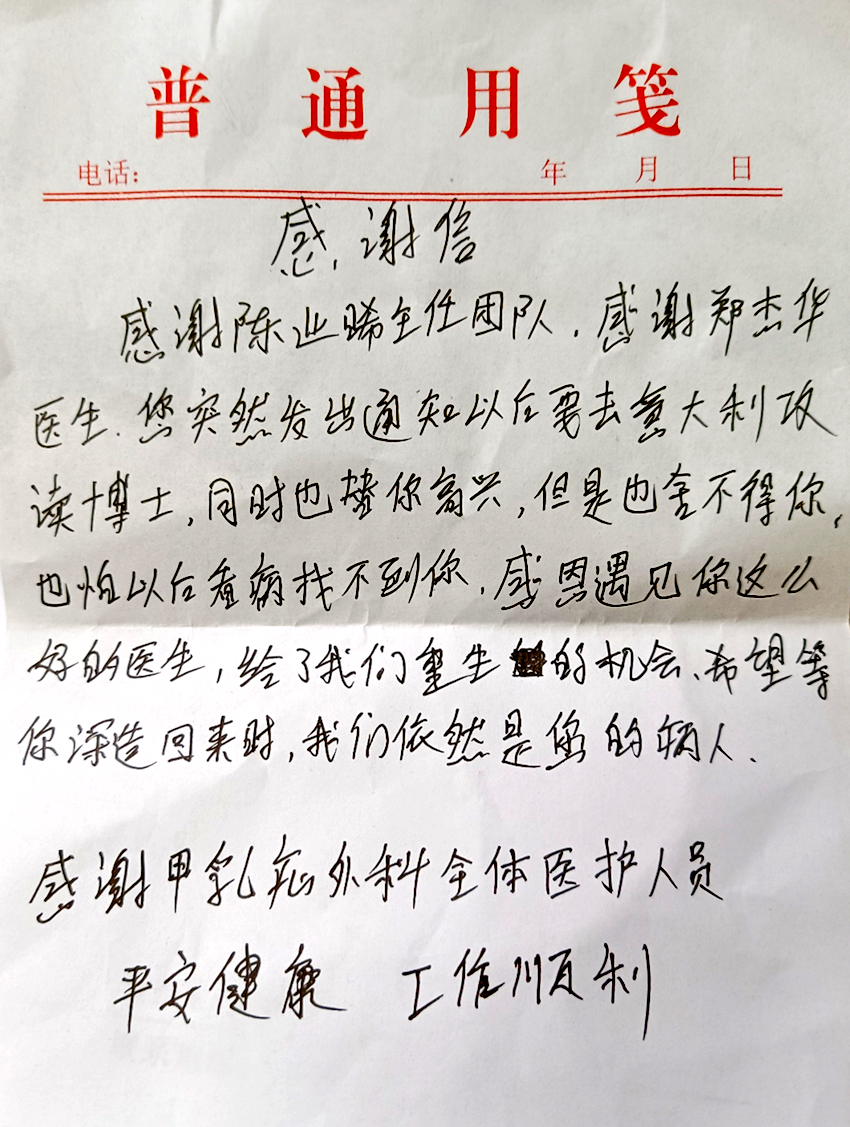 普通用笺
电话: 年 月 日
感谢信
感谢陈业晞主任团队.感谢郑杰华
医生.您突然发出通知以后要去意大利攻
读博士,同时也替你高兴,但是也舍不得你,
也怕以后看病找不到你.感恩遇见你这么
好的医生,给了我们重生的机会、希望等
你深造回来时,我们依然是您的病人.
感谢甲乳疝外科全体医护人员
平安健康 工作顺利